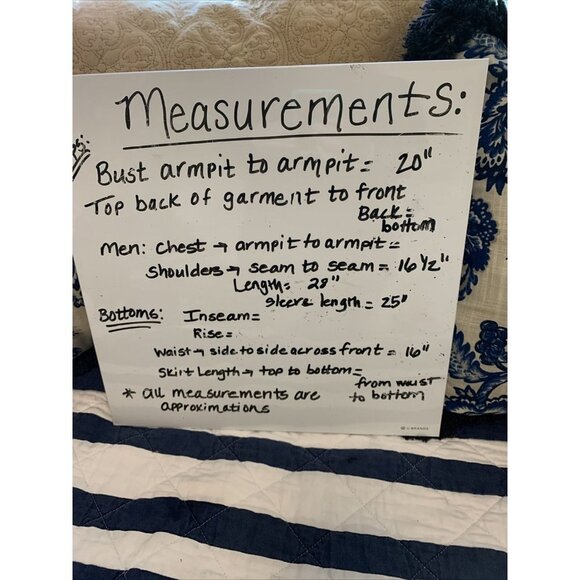 Measurements:
Bust armpit to armpit = 20"
Top back of garment to front
Back = bottom
Men: Chest → armpit to armpit =
Shoulders → seam to seam = 16 1/2"
Length = 28"
Sleeve length = 25"
Bottoms: Inseam =
Rise =
Waist → side to side across front = 16"
Skirt Length → top to bottom =
from waist
to bottom
* all measurements are
approximations
U BRANDS